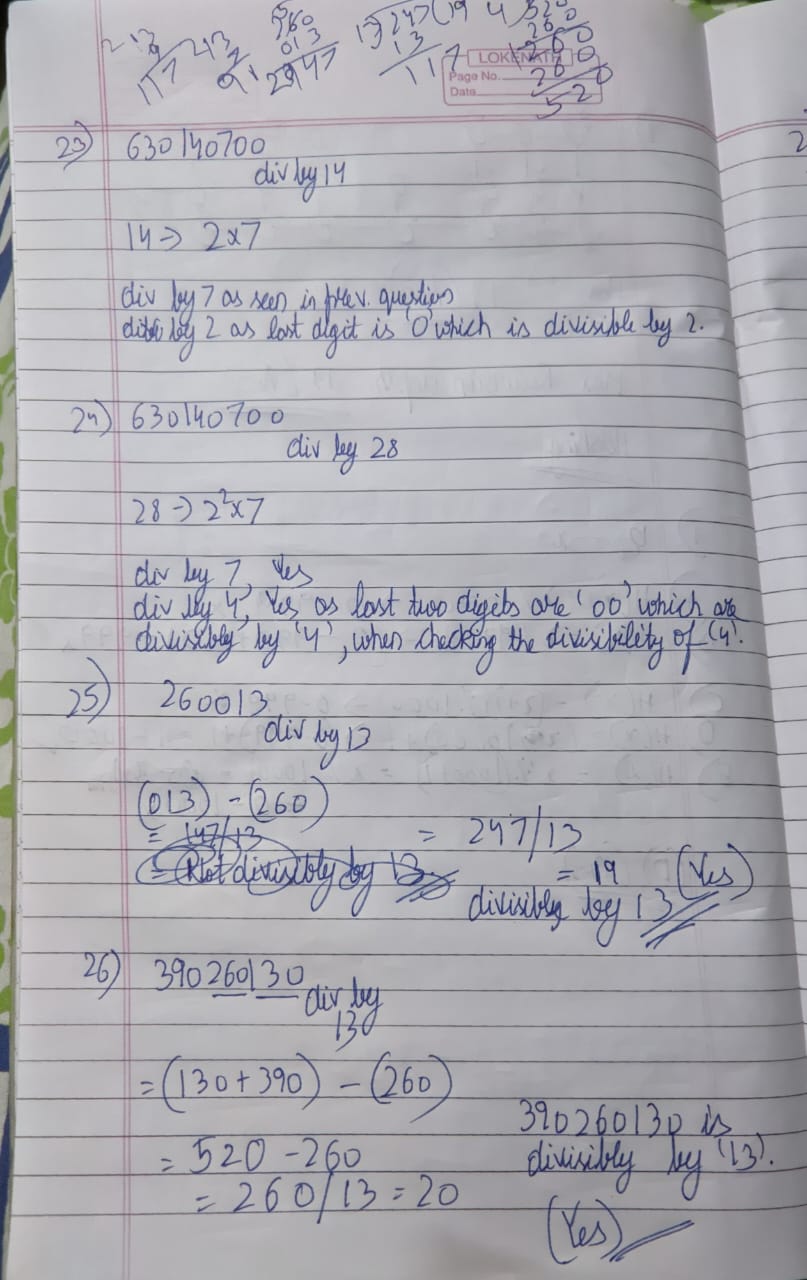 213
117
213
2
91
560
013
2947
13)247(19
13
117
4)520
260
1260
260
520
LOKENATH
Page No.
Date
2
23) 630140700
div by 14
14 => 2x7
div by 7 as seen in prev. question
by 2 as last digit is '0' which is divisible by 2.
24) 630140700
div by 28
28 -> 2²x7
div by 7, Yes
div by 4, Yes as last two digits are '00' which are
divisibly by '4', when checking the divisibility of '4'.
25) 260013
div by 13
(013) - (260)
= 147/13 = 247/13
= Not divisibly by 13 = 19 (Yes)
divisibly by 13
26) 390260130
div by
130
= (130+390) - (260)
390260130 is
= 520 - 260 divisibly by '13'.
= 260/13 = 20
(Yes)